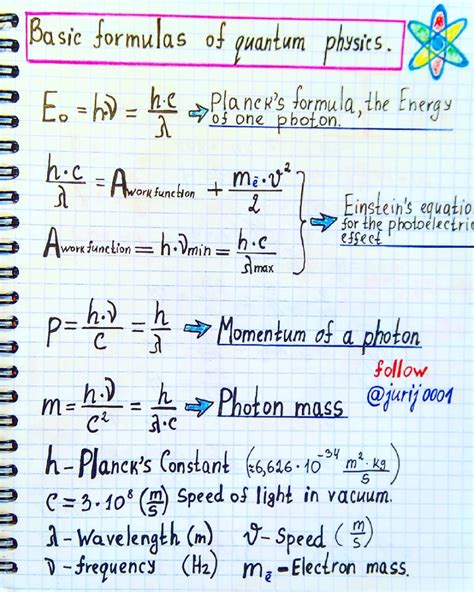 Basic formulas of quantum physics.
E₀ = h·ν = h·c/λ ⇒ Planck's formula, the Energy
of one photon.
h·c/λ = A work function + mē·ϑ²/2
Einstein's equatio
for the photoelectri
effect
A work function = h·νmin = h·c/λmax
p = h·ν/c = h/λ ⇒ Momentum of a photon
follow
@jurij0001
m = h·ν/c² = h/λ·c ⇒ Photon mass
h - Planck's Constant (≈6,626·10⁻³⁴ m²·kg/s)
c = 3·10⁸ (m/s) Speed of light in vacuum.
λ - Wavelength (m) ϑ - Speed (m/s)
ν - frequency (Hz) mē - Electron mass.